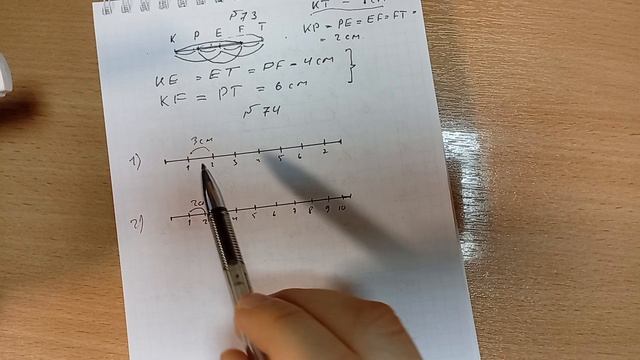 №73
K P E F T
KP = PE = EF = FT =
= 2 cm
KE = ET = PF = 4 cm
KF = PT = 6 cm
№74
3 cm
1) 1 2 3 4 5 6 2
2) 1 2 4 5 6 7 8 9 10